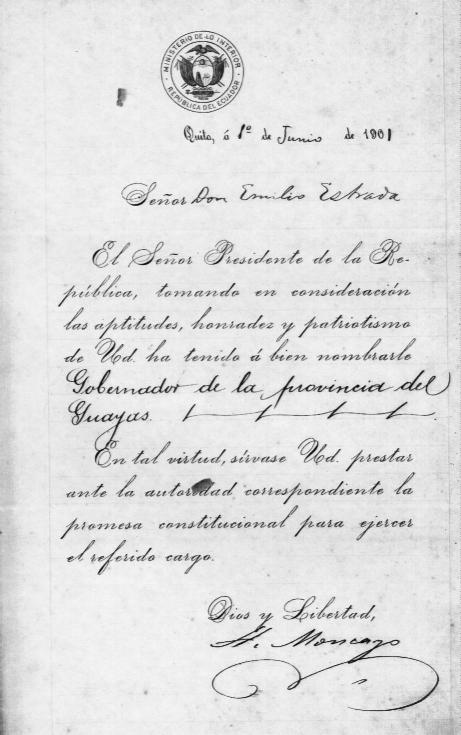 MINISTERIO DE LO INTERIOR
REPÚBLICA DEL ECUADOR
Quito, á 1º de Junio de 1901
Señor Don Emilio Estrada
El Señor Presidente de la Re-
pública, tomando en consideración
las aptitudes, honradez y patriotismo
de Ud. ha tenido á bien nombrarle
Gobernador de la provincia del
Guayas.
En tal virtud, sírvase Ud. prestar
ante la autoridad correspondiente la
promesa constitucional para ejercer
el referido cargo.
Dios y Libertad,
Moncayo